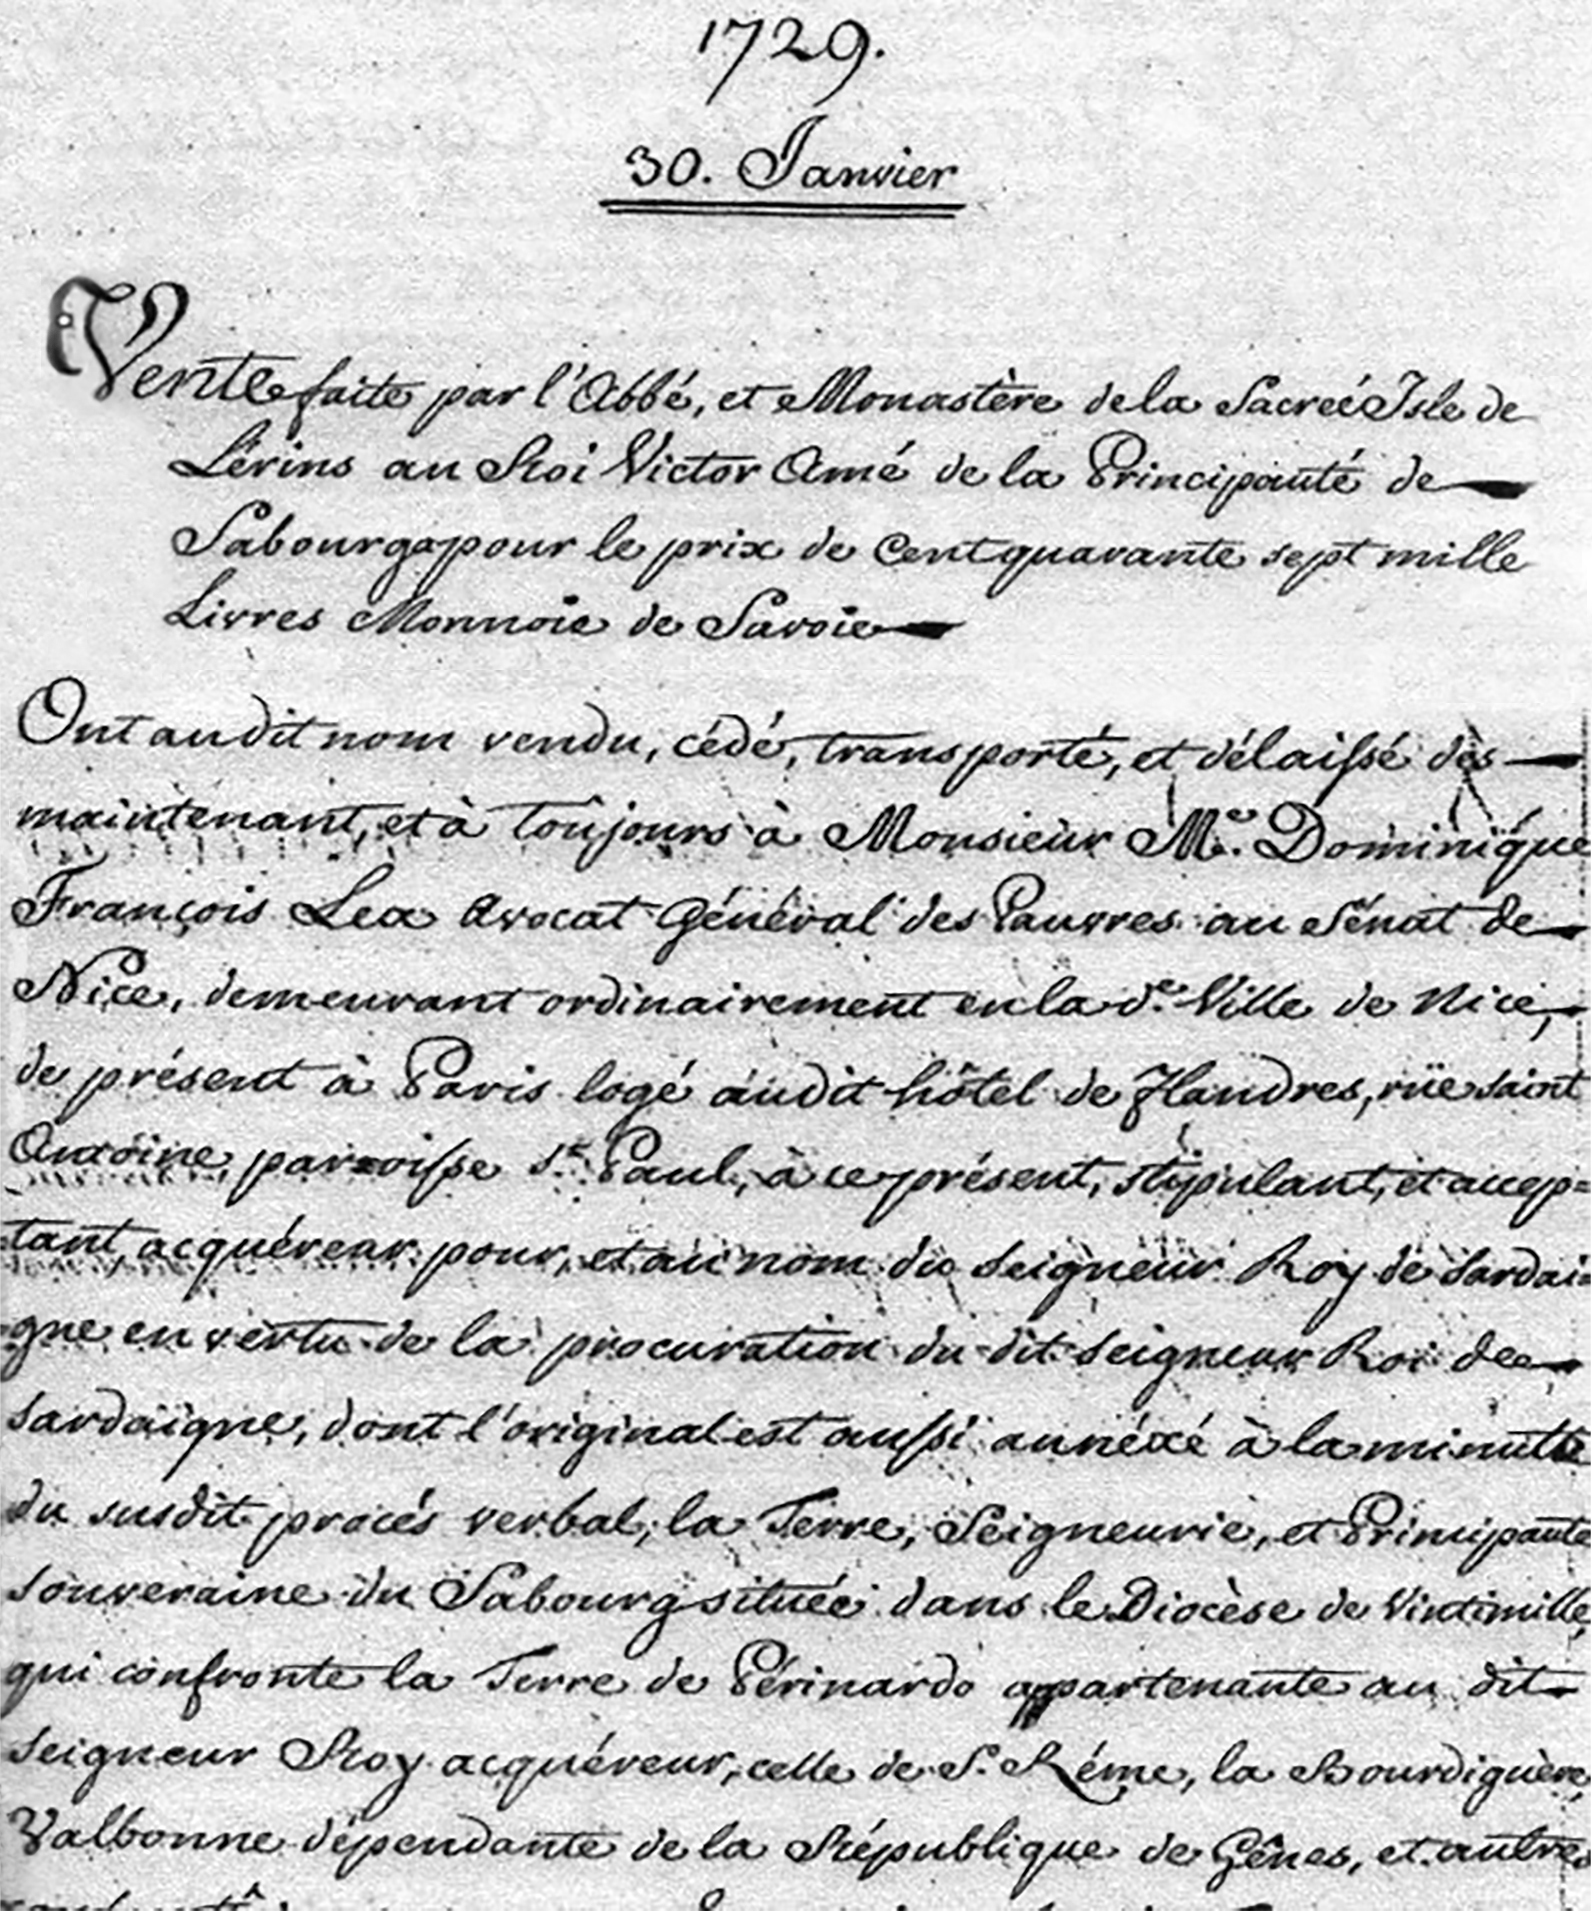 1729.
30. Janvier
Vente faite par l'Abbé, et Monastère de la Sacreé Isle de
Lérins au Roi Victor Amé de la Principauté de
Sabourga pour le prix de Cent quarante sept mille
Livres Monnoie de Savoie
Ont audit nom vendu, cédé, transporté, et délaissé dès
maintenant, et à toûjours à Monsieur Me. Dominique
François Lea Avocat Général des Pauvres au Sénat de
Nice, demeurant ordinairement en la de. Ville de Nice,
de présent à Paris logé audit hôtel de Flandres, rüe saint
Antoine, parroisse St. Paul, à ce présent, stipulant, et accep=
tant, acquéreur pour, et au nom du Seigneur Roy de Sardai=
=gne en vertu de la procuration du dit Seigneur Roi de
Sardaigne, dont l'original est aussi annéxé à la minutte
du susdit procés verbal, la Terre, Seigneurie, et Principauté
souveraine du Sabourg situéé dans le Diocèse de Vintimille,
qui confronte la Terre de Périnardo appartenante au dit
Seigneur Roy acquéreur, celle de St. Réme, la Bourdiguère,
Valbonne dépendante de la République de Gênes, et autres